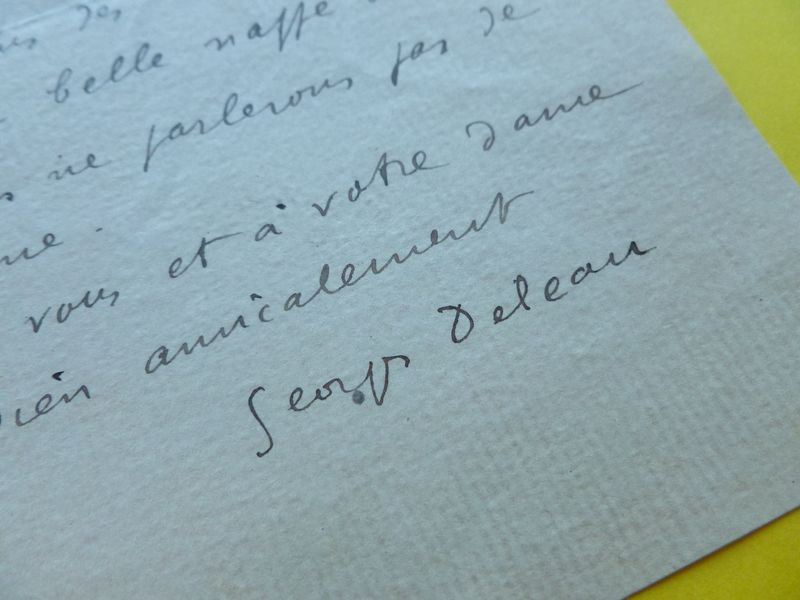 des
belle nappe
ne parlerons pas de
vous et à votre dame
bien amicalement
Georges Deleau